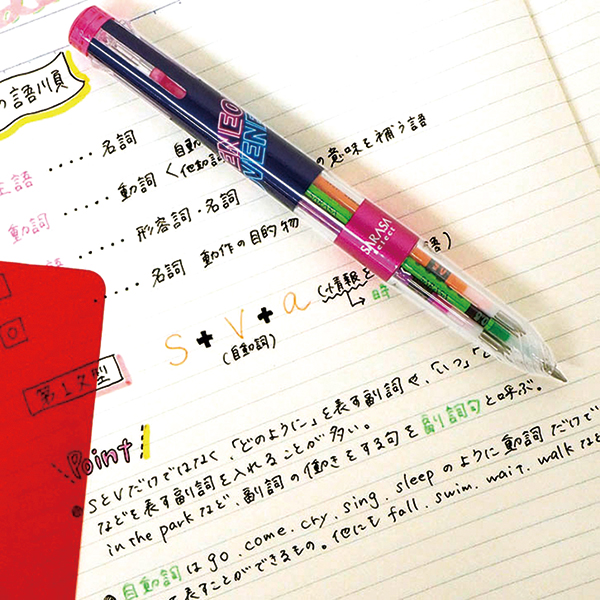 の語順
主語 ..... 名詞
動詞 ..... 動詞 < 自動
他動詞 の意味を補う語
語 ..... 形容詞・名詞
..... 名詞 動作の目的物 語)
S + V + a (情報を
(自動詞) 時
第1文型
Point!
SとVだけではなく、「どのように」を表す副詞や、「いつ」
などを表す副詞を入れることが多い。
in the parkなど、副詞の働きをする句を副詞句と呼ぶ。
自動詞はgo.come.cry.sing.sleepのように動詞だけで
を表すことができるもの。他にもfall.swim.wait.walkなど
ENEO
VENE
SARASA
select
0.5